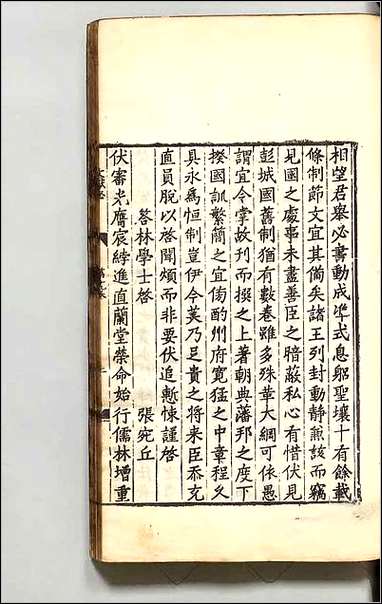 相望君舉必書動成準式息躬聖壤十有餘載
條制節文宜其備矣諸王列封動靜兼該而竊
見國之處事未盡善臣之暗蔽私心有惜伏見
彭城國舊制猶有數卷雖多殊華大綱可依愚
謂宜令掌故刊而掇之上著朝典藩邦之度下
揆國訓繁簡之宜傍酌州府寬猛之中章程久
具永為恒制豈伊今美乃足貴之将来臣忝充
直員脫以啓聞煩而非要伏追慙悚謹啓
答林學士啓
張宛丘
伏審光膺宸綍進直蘭堂榮命始行儒林增重